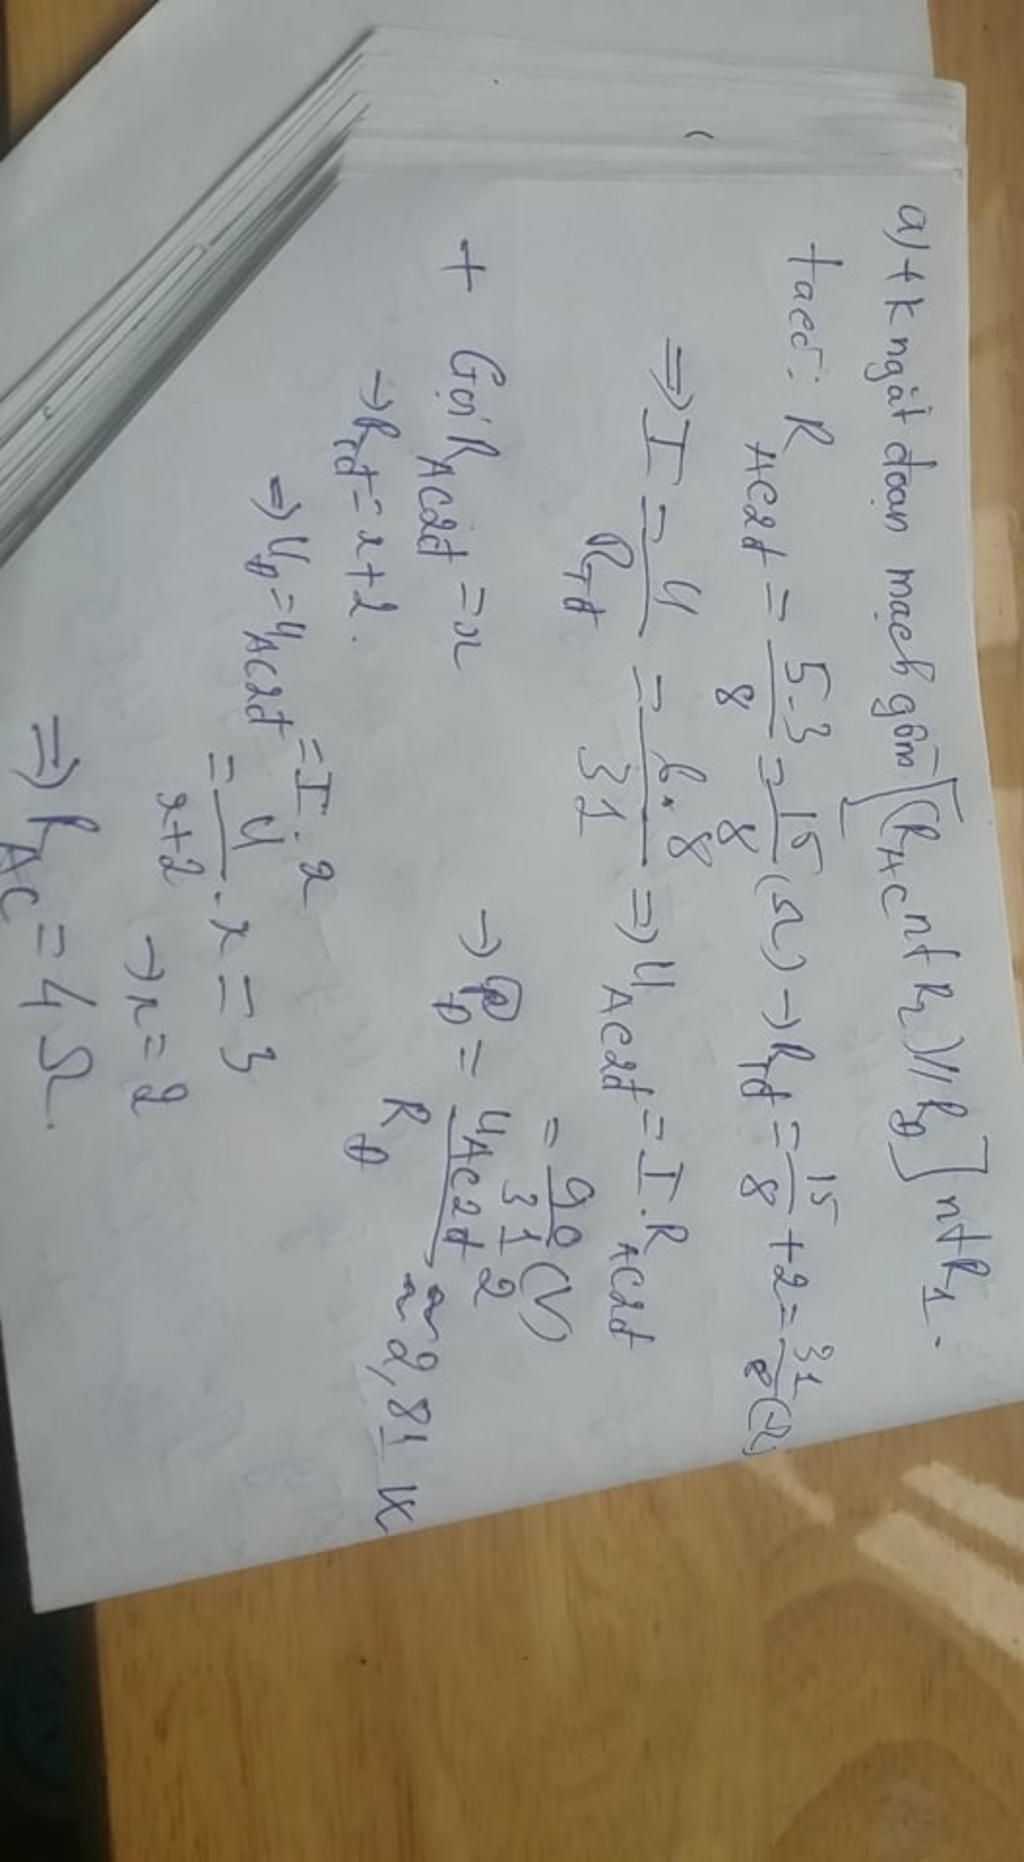 a) + K ngắt đoạn mạch gồm [(R_AC nt R_2) // R_Đ] nt R_1.
+ ta có: R_AC2đ = 5.3/8 = 15/8 (Ω) → R_tđ = 15/8 + 2 = 31/8 (Ω)
⇒ I = U/R_Tđ = 6.8/31 ⇒ U_AC2đ = I.R_AC2đ
= 90/31 (V)
→ P_Đ = U_AC2đ²/R_Đ ≈ 2,81 W
+ Gọi R_AC2đ = x
→ R_tđ = x + 2.
⇒ U_Đ = U_AC2đ = I.x
= U/x+2 . x = 3
→ x = 2
⇒ R_AC = 4 Ω.